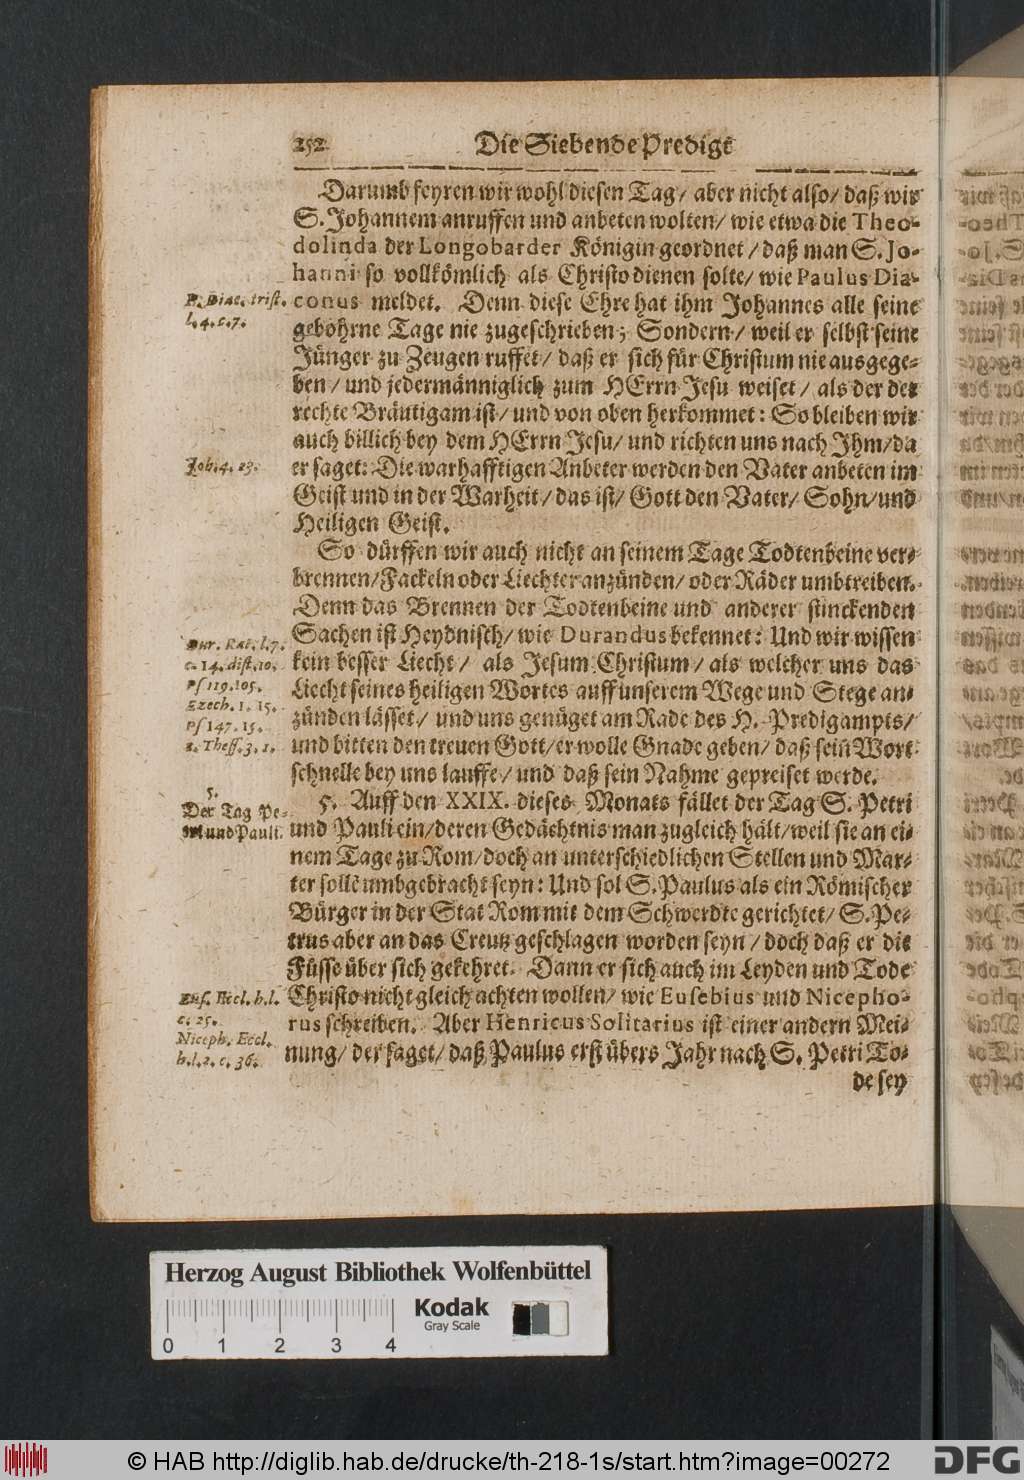 252 Die Siebende Predigt
Darumb feyren wir wohl diesen Tag/ aber nicht also/ daß wir
S. Johannem anruffen und anbeten wolten/ wie etwa die Theo-
dolinda der Longobarder Königin geordnet/ daß man S. Jo-
hanni so vollkömlich als Christo dienen solte/ wie Paulus Dia-
P. Diac. trist.
l. 4. c. 7.
conus meldet. Denn diese Ehre hat ihm Johannes alle seine
gebohrne Tage nie zugeschrieben; Sondern/ weil er selbst seine
Jünger zu Zeugen ruffet/ daß er sich für Christum nie ausgege-
ben/ und jedermänniglich zum HErrn Jesu weiset/ als der der
rechte Bräutigam ist/ und von oben herkommet: So bleiben wir
auch billich bey dem HErrn Jesu/ und richten uns nach Ihm/ da
Joh. 4. 23.
er saget: Die warhafftigen Anbeter werden den Vater anbeten im
Geist und in der Warheit/ das ist/ Gott den Vater/ Sohn/ und
Heiligen Geist.
So dürffen wir auch nicht an seinem Tage Todtenbeine ver-
brennen/ Fackeln oder Liechter anzünden/ oder Räder umbtreiben.
Denn das Brennen der Todtenbeine und anderer stinckenden
Dur. Rat. l. 7.
c. 14. dist. 10.
Ps 119. 105.
Ezech. 1. 15.
Ps 147. 15.
2. Thess. 3. 1.
Sachen ist Heydnisch/ wie Durandus bekennet: Und wir wissen
kein besser Liecht/ als Jesum Christum/ als welcher uns das
Liecht seines heiligen Wortes auff unserem Wege und Stege an-
zünden lässet/ und uns genüget am Rade des H. Predigampts/
und bitten den treuen Gott/ er wolle Gnade geben/ daß sein Wort
schnelle bey uns lauffe/ und daß sein Nahme gepreiset werde.
5.
Der Tag Pe-
tri und Pauli.
5. Auff den XXIX. dieses Monats fället der Tag S. Petri
und Pauli ein/ deren Gedächtnis man zugleich hält/ weil sie an ei-
nem Tage zu Rom/ doch an unterschiedlichen Stellen und Mar-
ter sollē umbgebracht seyn: Und sol S. Paulus als ein Römischer
Bürger in der Stat Rom mit dem Schwerdte gerichtet/ S. Pe-
trus aber an das Creutz geschlagen worden seyn/ doch daß er die
Füsse über sich gekehret. Dann er sich auch im Leyden und Tode
Eus. Eccl. h. l.
c. 25.
Niceph. Eccl.
h. l. 2. c. 36.
Christo nicht gleich achten wollen/ wie Eusebius und Nicepho-
rus schreiben. Aber Henricus Solitarius ist einer andern Mei-
nung/ der saget/ daß Paulus erst übers Jahr nach S. Petri To-
de sey
Herzog August Bibliothek Wolfenbüttel
0 1 2 3 4
Kodak
Gray Scale
© HAB http://diglib.hab.de/drucke/th-218-1s/start.htm?image=00272
DFG